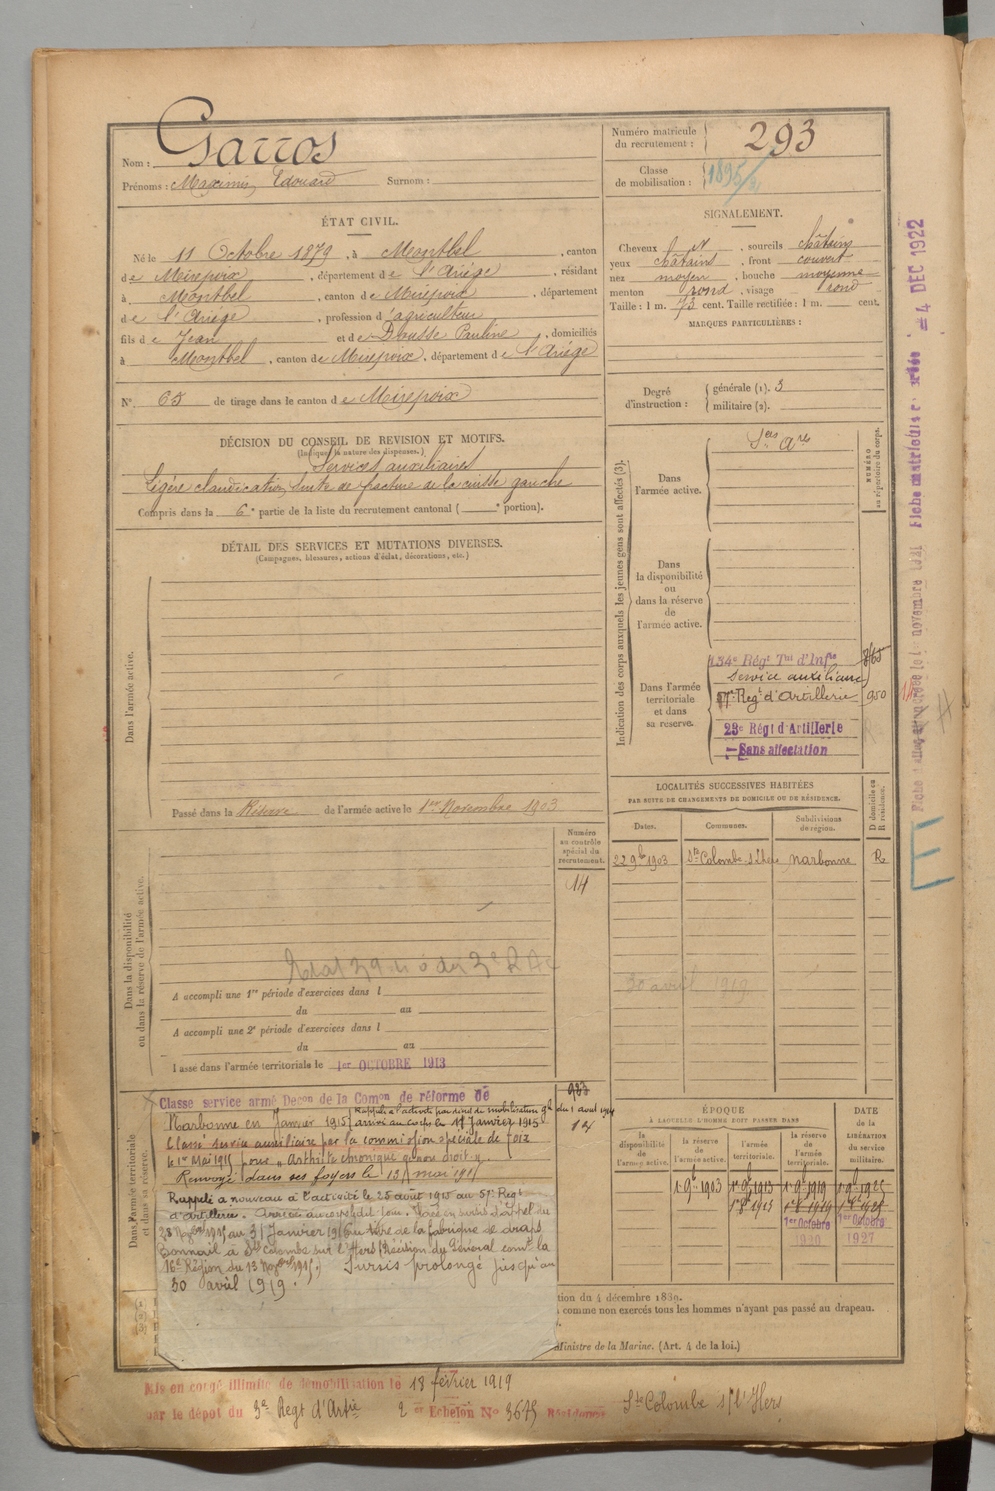 Nom : Garros
Prénoms : Maximin Edouard Surnom :
Numéro matricule
du recrutement : 293
Classe
de mobilisation : 1895
ÉTAT CIVIL.
Né le 11 Octobre 1879, à Montbel, canton
de Mirepoix, département de l'Ariège, résidant
à Montbel, canton de Mirepoix, département
de l'Ariège, profession d'agriculteur
fils de Jean et de Dousse Pauline, domiciliés
à Montbel, canton de Mirepoix, département de l'Ariège
N° 65 de tirage dans le canton de Mirepoix
SIGNALEMENT.
Cheveux et, sourcils châtains
yeux châtains, front couvert
nez moyen, bouche moyenne
menton rond, visage rond
Taille : 1 m. 73 cent. Taille rectifiée : 1 m. cent.
MARQUES PARTICULIÈRES :
Degré
d'instruction :
générale (1). 3
militaire (2).
DÉCISION DU CONSEIL DE REVISION ET MOTIFS.
(Indiquer la nature des dispenses.)
Services auxiliaires
Légère claudication suite de fracture de la cuisse gauche
Compris dans la 6e partie de la liste du recrutement cantonal ( e portion).
DÉTAIL DES SERVICES ET MUTATIONS DIVERSES.
(Campagnes, blessures, actions d'éclat, décorations, etc.)
Dans l'armée active.
Passé dans la Réserve de l'armée active le 1er Novembre 1903
Indication des corps auxquels les jeunes gens sont affectés (3).
NUMÉRO
au répertoire du corps.
Dans
l'armée active.
Ses Ares
Dans
la disponibilité
ou
dans la réserve
de
l'armée active.
Dans l'armée
territoriale
et dans
sa réserve.
134e Régt Tal d'Infie
Service auxiliaire
57e Regt d'Artillerie 950
23e Régt d'Artillerie
Sans affectation
LOCALITÉS SUCCESSIVES HABITÉES
PAR SUITE DE CHANGEMENTS DE DOMICILE OU DE RÉSIDENCE.
Dates. Communes. Subdivisions
de région.
D domicile ou
R résidence.
22 9bre 1903 Ste Colombe s/l'hers Narbonne R
30 avril 1919
Numéro
au contrôle
spécial du
recrutement.
14
Dans la disponibilité
ou dans la réserve de l'armée active.
A accompli une 1re période d'exercices dans l
du au
A accompli une 2e période d'exercices dans l
du au
Passé dans l'armée territoriale le 1er OCTOBRE 1913
Dans l'armée territoriale
et dans sa réserve.
Classe service armé Decon de la Comon de réforme de
Narbonne en Janvier 1915
Rappelé à l'activité par décret de mobilisation gle du 1 août 1914
arrivé au corps le 17 Janvier 1915
Classé service auxiliaire par la commission spéciale de Foix
le 1er Mai 1915 pour "Arthrite chronique genou droit".
Renvoyé dans ses foyers le 13 mai 1915
Rappelé à nouveau à l'activité le 25 août 1915 au 57e Regt
d'Artillerie. Arrivé au corps ledit jour. Placé en sursis d'appel du
28 Novbre 1915 au 31 Janvier 1916 au titre de la fabrique de draps
Bonnail à Ste Colombe sur l'Hers (Décision du Général comt la
16e Région du 13 Novbre 1915). Sursis prolongé jusqu'au
30 avril 1919.
923
14
ÉPOQUE
À LAQUELLE L'HOMME DOIT PASSER DANS
DATE
DE LA
LIBÉRATION
du service
militaire.
la
disponibilité
de
l'armée active.
la réserve
de
l'armée active.
l'armée
territoriale.
la réserve
de
l'armée
territoriale.
1 9bre 1903 1er 9bre 1913 1er 9bre 1919 1er 9bre 1925
1er 8bre 1913 1er 8bre 1919 1er 8bre 1925
1er Octobre 1er Octobre
1920 1927
tion du 4 décembre 1889.
comme non exercés tous les hommes n'ayant pas passé au drapeau.
Ministre de la Marine. (Art. 4 de la loi.)
Mis en congé illimité de démobilisation le 18 février 1919
par le dépôt du 3e Regt d'Artie 2er Echelon No 3675 Résidence Ste Colombe s/l'Hers
4 DEC 1922